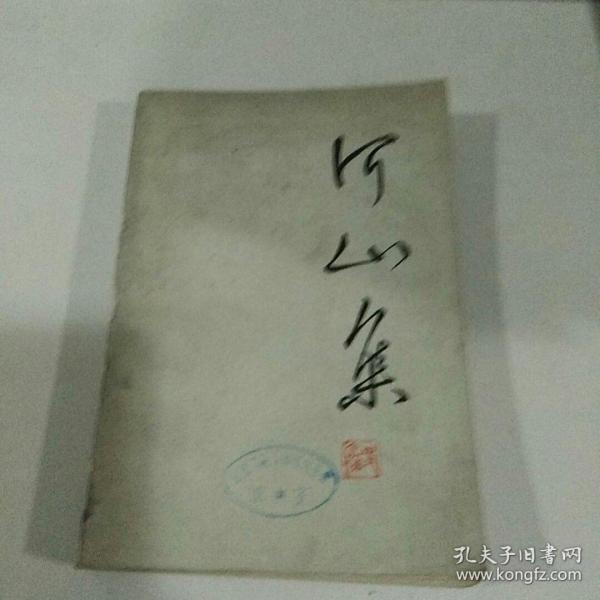 河山集
孔夫子旧書网
www.kongfz.com